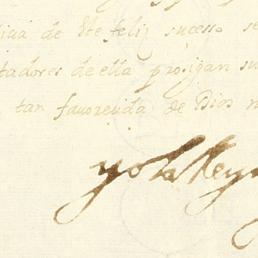 de este feliz sucesso se
tadores de ella prosigan su
tan favorecida de Dios n
yo la Reyna